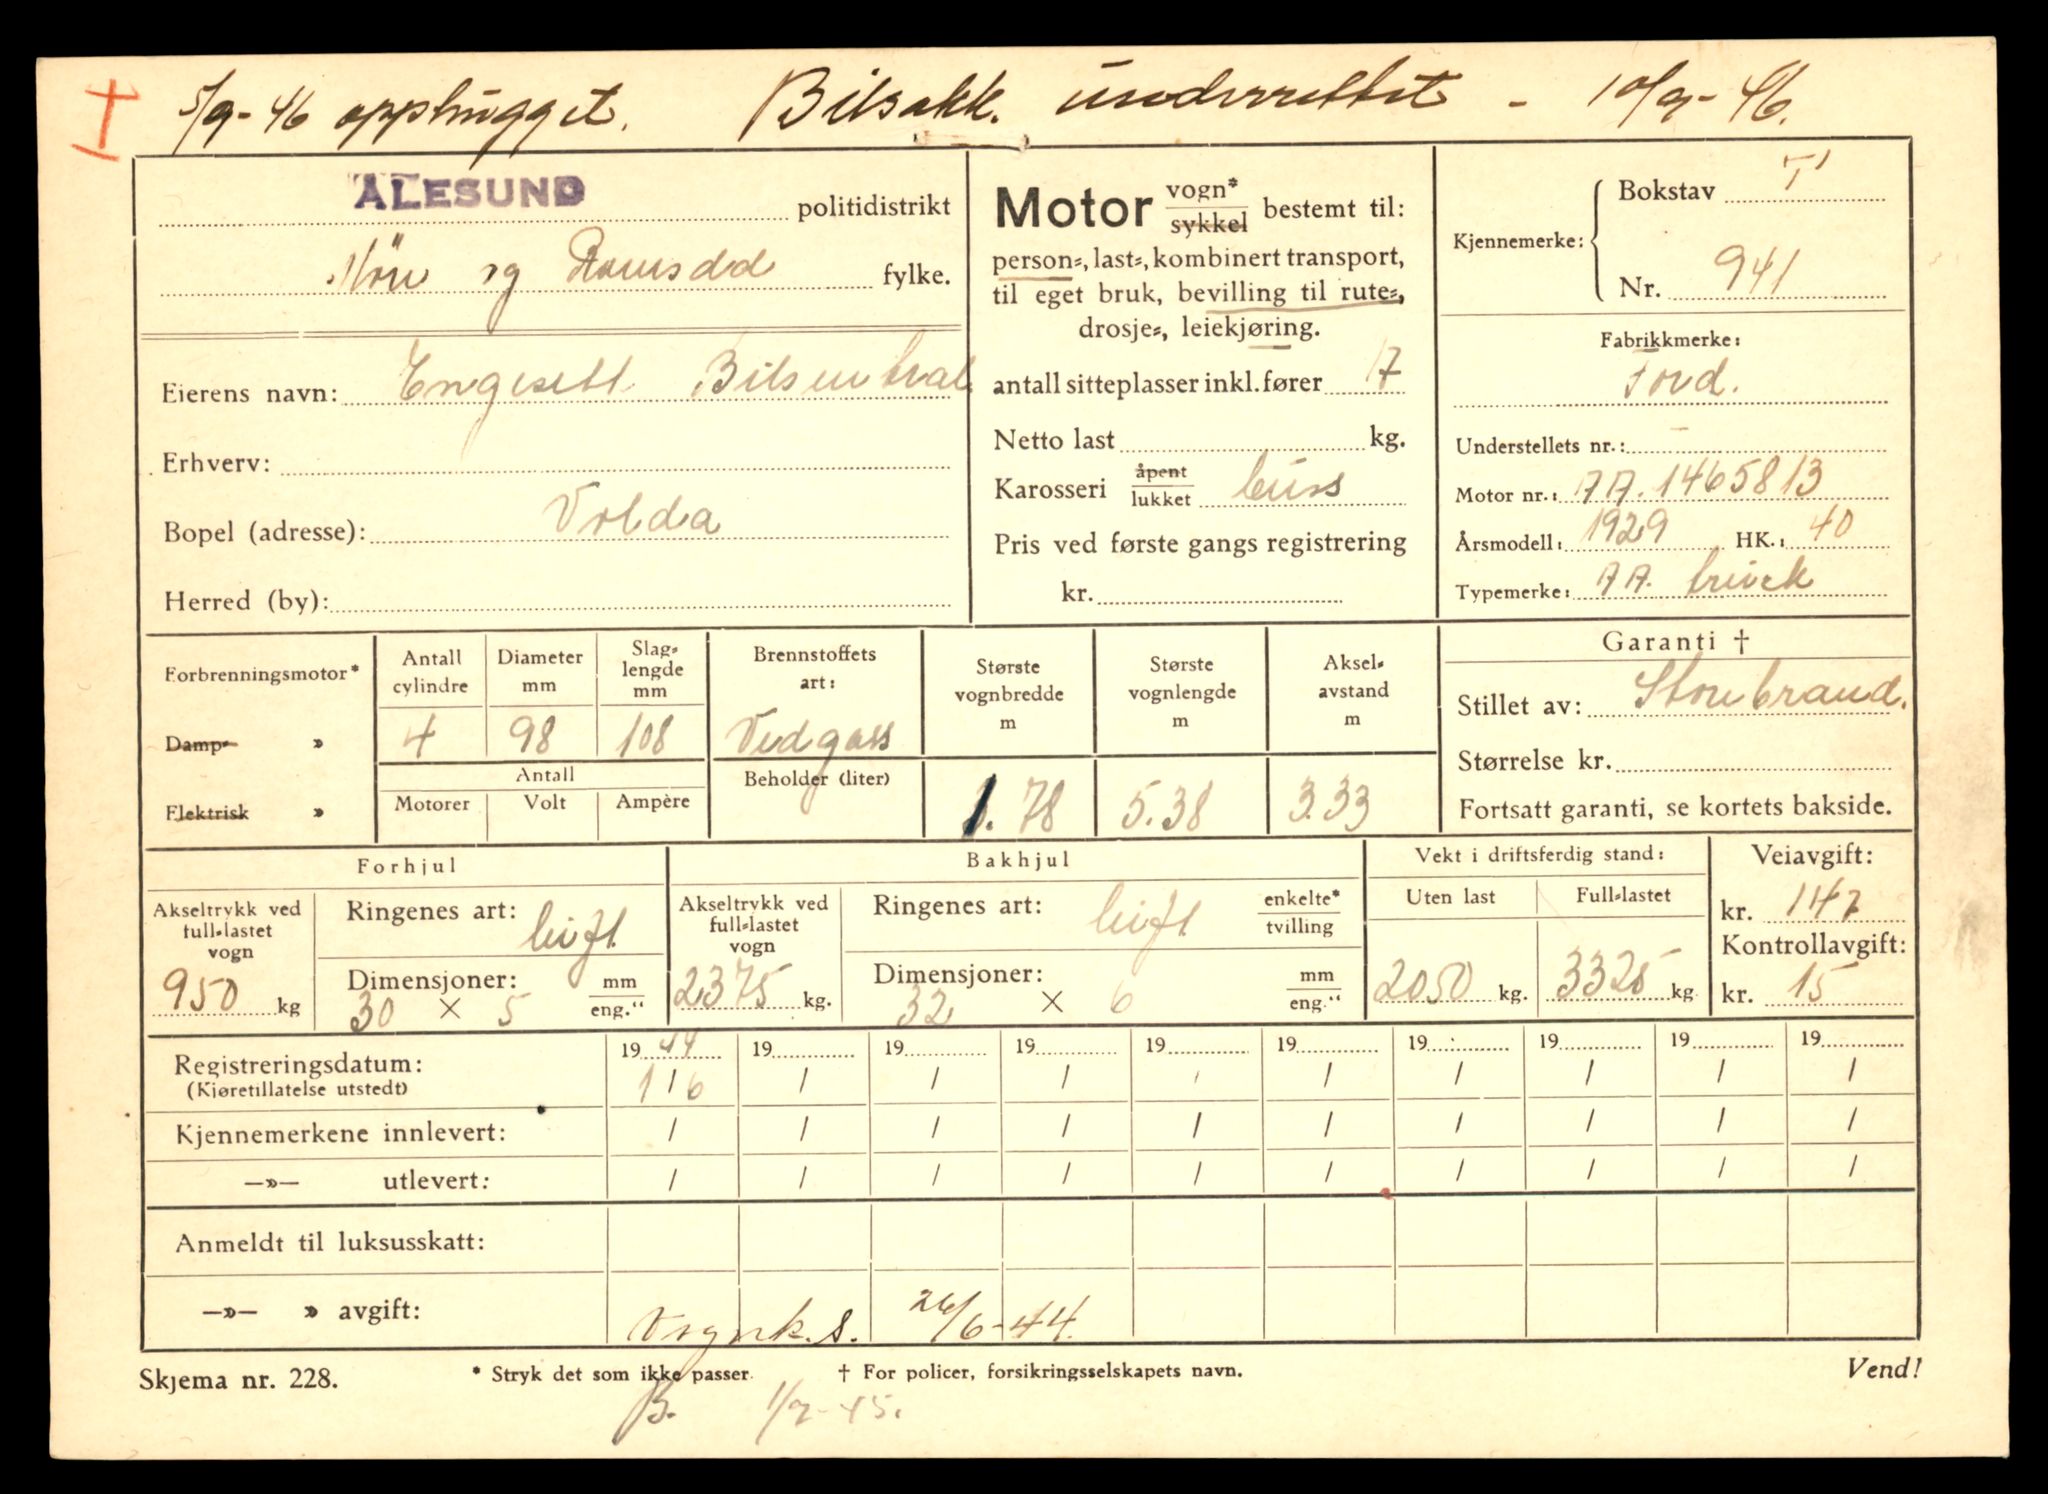 5/9-46 opphugget. Bilsakk. underrettet - 10/9-46.
ÅLESUND politidistrikt
Møre og Romsdal fylke.
Eierens navn: Engeset Bilsentral
Erhverv:
Bopel (adresse): Volda
Herred (by):
Motor vogn* sykkel bestemt til:
person-, last-, kombinert transport,
til eget bruk, bevilling til rute-,
drosje-, leiekjøring.
antall sitteplasser inkl. fører 17
Netto last kg.
Karosseri åpent lukket buss
Pris ved første gangs registrering
kr.
Kjennemerke: Bokstav T
Nr. 941
Fabrikkmerke:
Ford.
Understellets nr.: -
Motor nr.: AA. 1465813
Årsmodell: 1929 HK.: 40
Typemerke: AA. bruck
Forbrenningsmotor*
Damp- »
Elektrisk »
Antall cylindre 4
Diameter mm 98
Slag-lengde mm 108
Antall
Motorer Volt Ampère
Brennstoffets art: Vedgass
Beholder (liter)
Største vognbredde m 1.78
Største vognlengde m 5.38
Aksel-avstand m 3.33
Garanti †
Stillet av: Storebrand.
Størrelse kr.
Fortsatt garanti, se kortets bakside.
Forhjul
Akseltrykk ved full-lastet vogn 950 kg
Ringenes art: luft
Dimensjoner: 30 × 5 mm eng."
Bakhjul
Akseltrykk ved full-lastet vogn 2375 kg.
Ringenes art: luft enkelte* tvilling
Dimensjoner: 32 × 6 mm eng."
Vekt i driftsferdig stand:
Uten last 2050 kg.
Full-lastet 3325 kg
Veiavgift:
kr. 147
Kontrollavgift:
kr. 15
Registreringsdatum: 1944 19 19 19 19 19 19 19 19 19
(Kjøretillatelse utstedt) 1/6 / / / / / / / / /
Kjennemerkene innlevert: / / / / / / / / / /
—»— utlevert: / / / / / / / / / /
Anmeldt til luksusskatt:
—»— » avgift: Vognk.s. 26/6-44.
Skjema nr. 228. * Stryk det som ikke passer. † For policer, forsikringsselskapets navn. Vend!
B. 1/9-45.